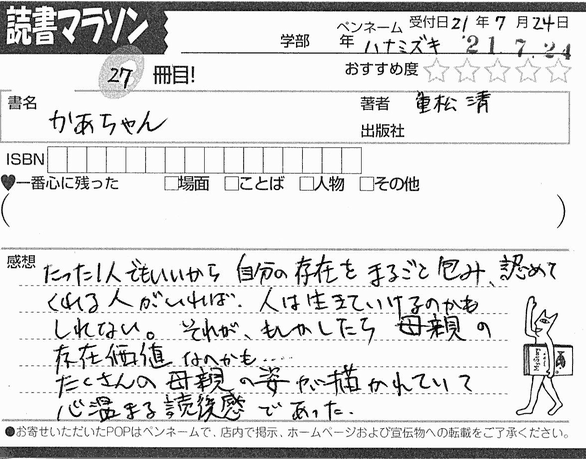 読書マラソン
学部 年 ペンネーム ハナミズキ 受付日21年7月24日
'21.7.24
27 冊目!
おすすめ度☆☆☆☆☆
書名 かあちゃん
著者 重松 清
出版社
ISBN
♥一番心に残った □場面 □ことば □人物 □その他
( )
感想 たった1人でもいいから 自分の存在を まるごと包み、認めて
くれる人がいれば、人は生きていけるのかも
しれない。それが、もしかしたら 母親の
存在価値なのかも……
たくさんの母親の姿が描かれていて
心温まる読後感であった。
●お寄せいただいたPOPはペンネームで、店内で掲示、ホームページおよび宣伝物への転載をご了承ください。